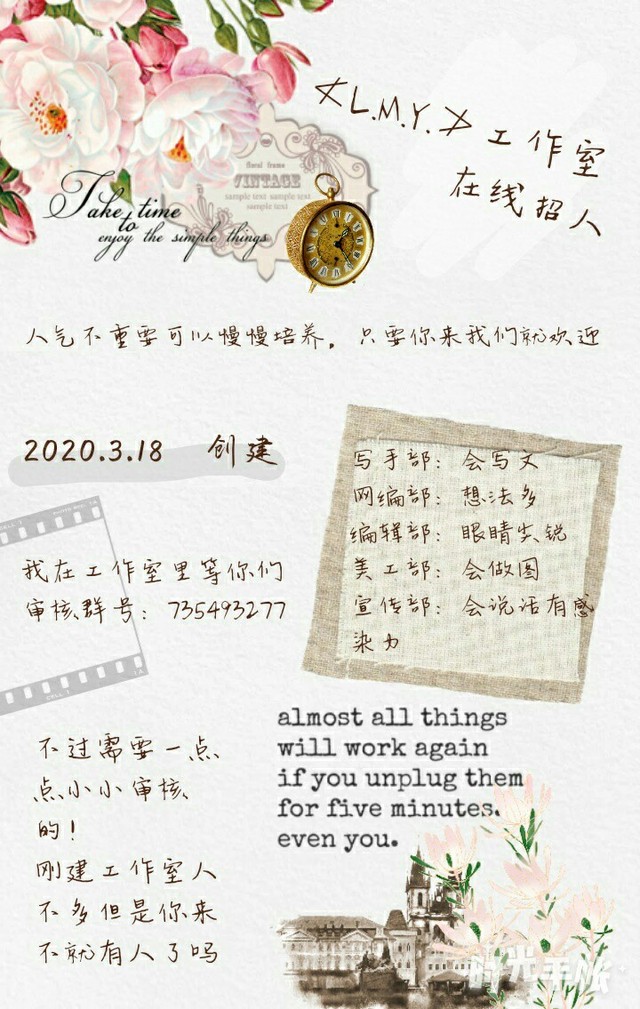 ≮L.M.Y.≯工作室
在线招人
floral frame
VINTAGE
sample text sample text
sample text
Take time
to
enjoy the simple things
人气不重要可以慢慢培养，只要你来我们就欢迎
2020.3.18 创建
写手部：会写文
网编部：想法多
编辑部：眼睛尖锐
美工部：会做图
宣传部：会说话有感
染力
我在工作室里等你们
审核群号：735493277
almost all things
will work again
if you unplug them
for five minutes.
even you.
不过需要一点
点小小审核
的！
刚建工作室人
不多但是你来
不就有人了吗
时光手账